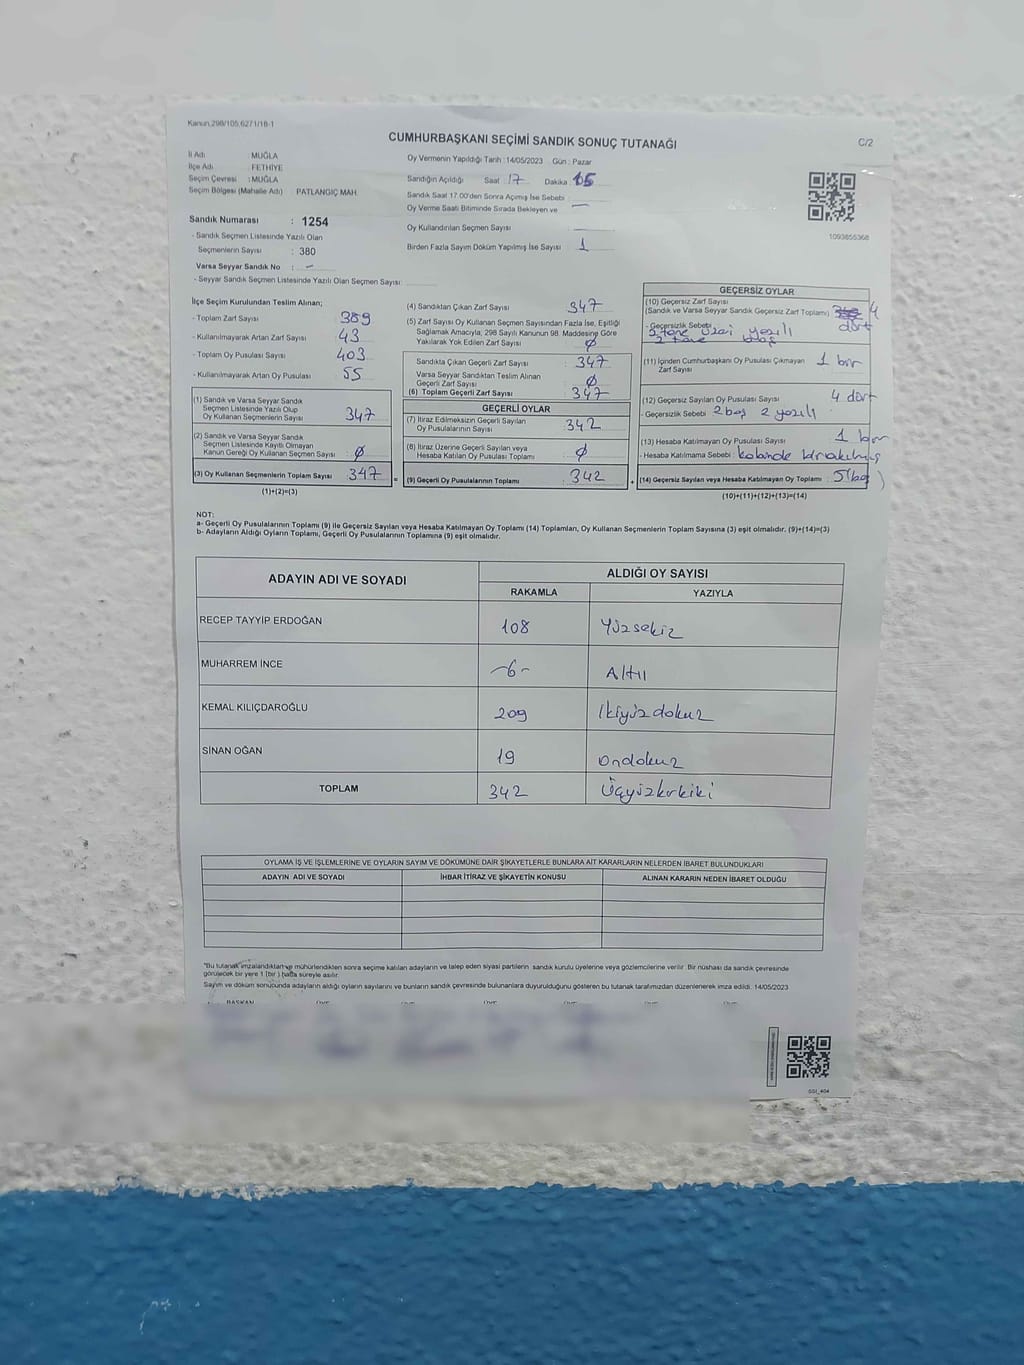 Kanun,298/105,6271/18-1
CUMHURBAŞKANI SEÇİMİ SANDIK SONUÇ TUTANAĞI
C/2
İl Adı : MUĞLA
İlçe Adı : FETHİYE
Seçim Çevresi : MUĞLA
Seçim Bölgesi (Mahalle Adı) PATLANGIÇ MAH.
Sandık Numarası : 1254
- Sandık Seçmen Listesinde Yazılı Olan
Seçmenlerin Sayısı : 380
Varsa Seyyar Sandık No : -
- Seyyar Sandık Seçmen Listesinde Yazılı Olan Seçmen Sayısı:
Oy Vermenin Yapıldığı Tarih :14/05/2023 Gün : Pazar
Sandığın Açıldığı Saat :17 Dakika : 15
Sandık Saat 17.00'den Sonra Açılmış İse Sebebi :
Oy Verme Saati Bitiminde Sırada Bekleyen ve
Oy Kullandırılan Seçmen Sayısı:
Birden Fazla Sayım Döküm Yapılmış İse Sayısı : 1
1093855368
İlçe Seçim Kurulundan Teslim Alınan;
- Toplam Zarf Sayısı : 389
- Kullanılmayarak Artan Zarf Sayısı : 43
- Toplam Oy Pusulası Sayısı : 403
- Kullanılmayarak Artan Oy Pusulası : 55
(1) Sandık ve Varsa Seyyar Sandık
Seçmen Listesinde Yazılı Olup
Oy Kullanan Seçmenlerin Sayısı : 347
(2) Sandık ve Varsa Seyyar Sandık
Seçmen Listesinde Kayıtlı Olmayan
Kanun Gereği Oy Kullanan Seçmen Sayısı : Ø
(3) Oy Kullanan Seçmenlerin Toplam Sayısı : 347 =
(1)+(2)=(3)
(4) Sandıktan Çıkan Zarf Sayısı : 347
(5) Zarf Sayısı Oy Kullanan Seçmen Sayısından Fazla İse, Eşitliği
Sağlamak Amacıyla, 298 Sayılı Kanunun 98. Maddesine Göre
Yakılarak Yok Edilen Zarf Sayısı : Ø
Sandıkta Çıkan Geçerli Zarf Sayısı : 347
Varsa Seyyar Sandıktan Teslim Alınan
Geçerli Zarf Sayısı : Ø
(6) Toplam Geçerli Zarf Sayısı : 347
GEÇERLİ OYLAR
(7) İtiraz Edilmeksizin Geçerli Sayılan
Oy Pusulalarının Sayısı : 342
(8) İtiraz Üzerine Geçerli Sayılan veya
Hesaba Katılan Oy Pusulası Toplamı : Ø
(9) Geçerli Oy Pusulalarının Toplamı : 342 +
GEÇERSİZ OYLAR
(10) Geçersiz Zarf Sayısı
(Sandık ve Varsa Seyyar Sandık Geçersiz Zarf Toplamı) : 4
dört
- Geçersizlik Sebebi:
2 tane üzeri yazılı
2 tane boş
(11) İçinden Cumhurbaşkanı Oy Pusulası Çıkmayan
Zarf Sayısı : 1 bir
(12) Geçersiz Sayılan Oy Pusulası Sayısı : 4 dört
- Geçersizlik Sebebi : 2 boş 2 yazılı
(13) Hesaba Katılmayan Oy Pusulası Sayısı : 1 bir
- Hesaba Katılmama Sebebi : kabinde bırakılmış
(14) Geçersiz Sayılan veya Hesaba Katılmayan Oy Toplamı : 5(beş)
(10)+(11)+(12)+(13)=(14)
NOT:
a- Geçerli Oy Pusulalarının Toplamı (9) ile Geçersiz Sayılan veya Hesaba Katılmayan Oy Toplamı (14) Toplamları, Oy Kullanan Seçmenlerin Toplam Sayısına (3) eşit olmalıdır. (9)+(14)=(3)
b- Adayların Aldığı Oyların Toplamı, Geçerli Oy Pusulalarının Toplamına (9) eşit olmalıdır.
ADAYIN ADI VE SOYADI
ALDIĞI OY SAYISI
RAKAMLA YAZIYLA
RECEP TAYYİP ERDOĞAN 108 Yüzsekiz
MUHARREM İNCE -6- Altı
KEMAL KILIÇDAROĞLU 209 İkiyüzdokuz
SİNAN OĞAN 19 Ondokuz
TOPLAM 342 Üçyüzkırkiki
OYLAMA İŞ VE İŞLEMLERİNE VE OYLARIN SAYIM VE DÖKÜMÜNE DAİR ŞİKAYETLERLE BUNLARA AİT KARARLARIN NELERDEN İBARET BULUNDUKLARI
ADAYIN ADI VE SOYADI İHBAR İTİRAZ VE ŞİKAYETİN KONUSU ALINAN KARARIN NEDEN İBARET OLDUĞU
"Bu tutanak imzalandıktan ve mühürlendikten sonra seçime katılan adayların ve talep eden siyasi partilerin sandık kurulu üyelerine veya gözlemcilerine verilir. Bir nüshası da sandık çevresinde
görülecek bir yere 1 (bir ) hafta süreyle asılır.
Sayım ve döküm sonucunda adayların aldığı oyların sayılarını ve bunların sandık çevresinde bulunanlara duyurulduğunu gösteren bu tutanak tarafımızdan düzenlenerek imza edildi. 14/05/2023
BAŞKAN ÜYE ÜYE ÜYE ÜYE ÜYE ÜYE